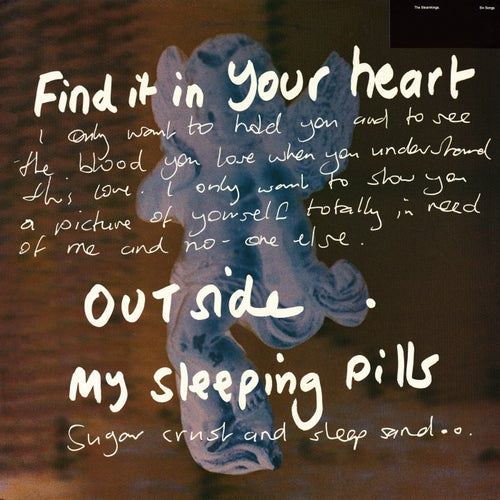 The Steamkings. Six Songs
Find it in your heart
I only want to hold you and to see
the blood you love when you understand
this love. I only want to show you
a picture of yourself totally in need
of me and no-one else.
OUTside.
My sleeping pills
Sugar crust and sleep sand...